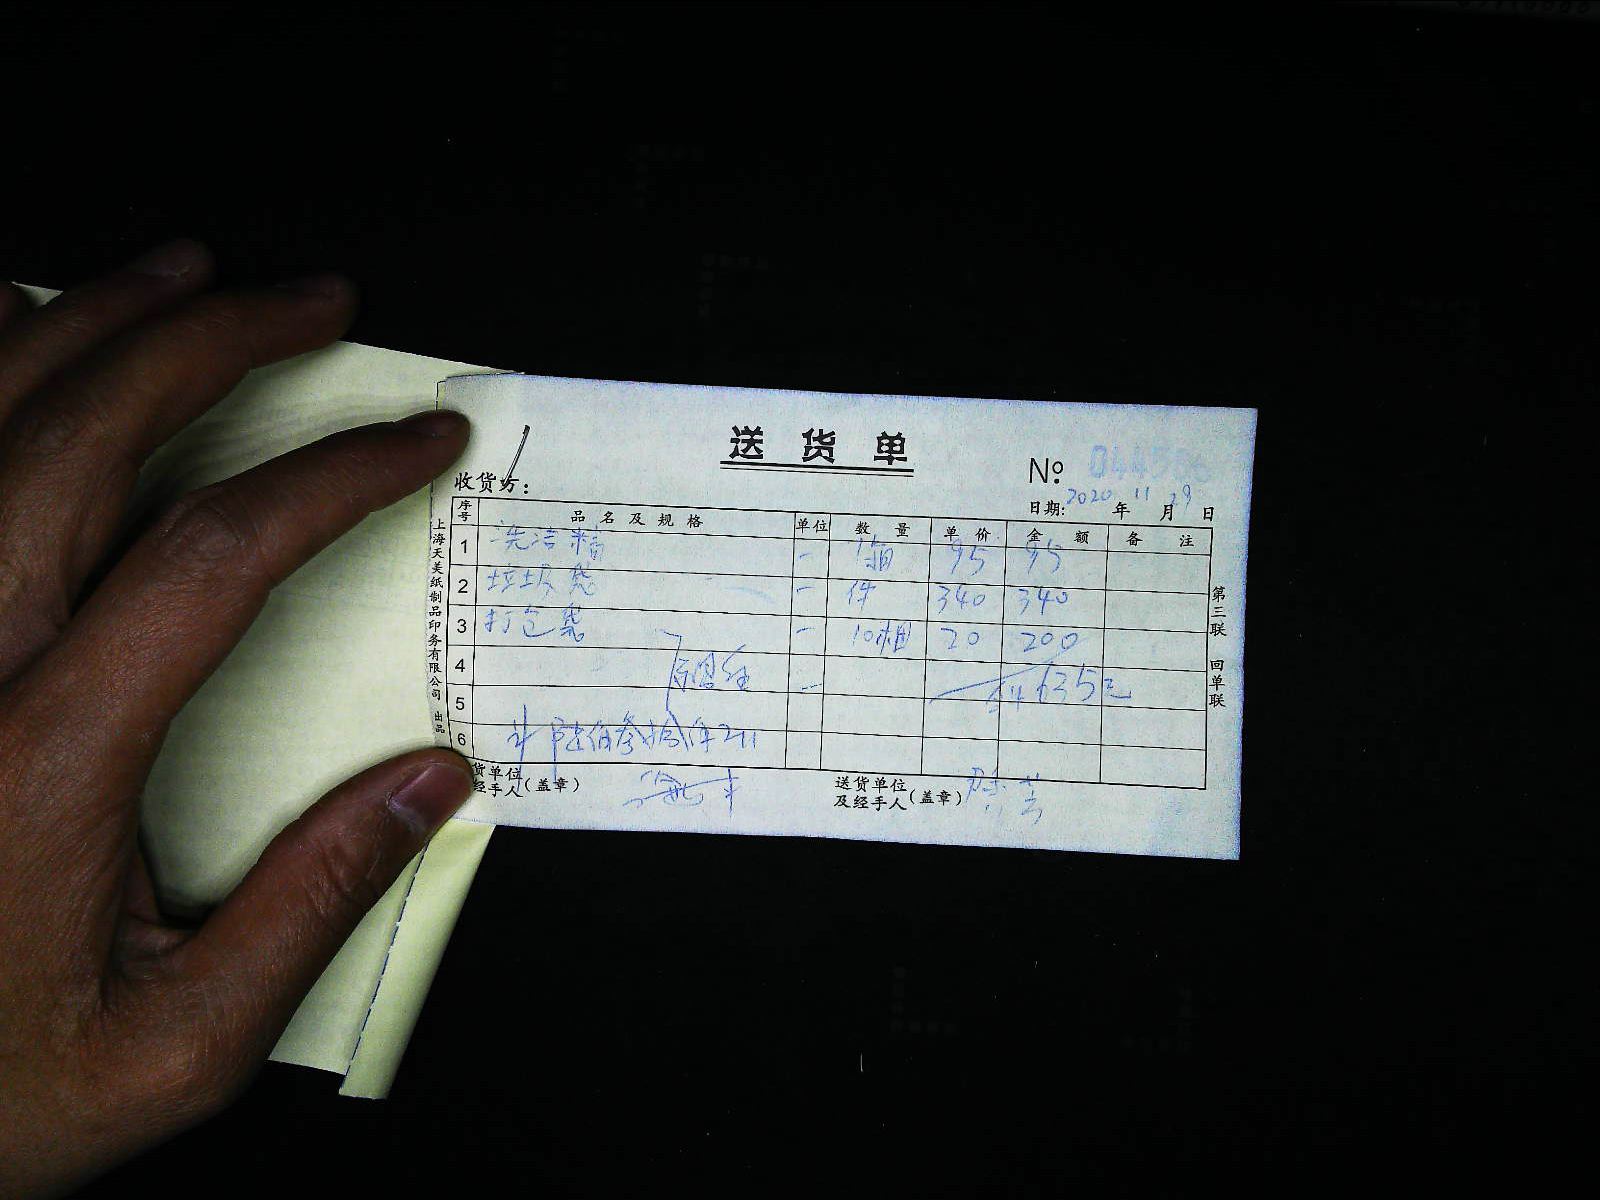 送货单
收货方：
No 044586
日期：2020年11月29日
序号 品名及规格 单位 数量 单价 金额 备注
1 洗洁精 一 1箱 95 95
2 垃圾袋 一 件 340 340
3 打包袋 一 10捆 20 200
4 635元
5
6 计陆佰叁拾伍元
货单位
经手人（盖章）
送货单位
及经手人（盖章）
上海天美纸制品印务有限公司 出品
第三联 回单联